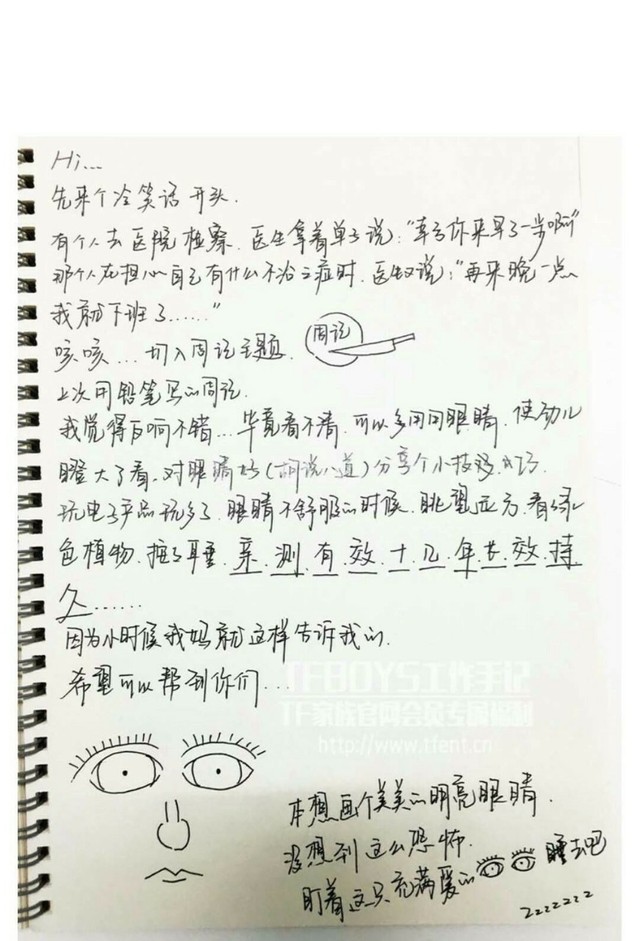 Hi...
先来个冷笑话开头.
有个人去医院检察.医生拿着单子说:“幸亏你来早了一步啊”
那个人在担心自己有什么不治之症时.医生又说:“再来晚一点
我就下班了......”
咳咳...切入周记主题.
周记
上次用铅笔写的周记.
我觉得反响不错...毕竟看不清.可以多用用眼睛.使劲儿
瞪大了看.对眼睛好(胡说八道)分享个小技巧
玩电子产品玩多了.眼睛不舒服的时候.眺望远方.看绿
色植物.捏了耳垂.亲.测.有.效.十.几.年.长.效.持
久......
因为小时候我妈就这样告诉我的.
希望可以帮到你们...
TFBOYS工作手记
TF家族官网会员专属福利
http://www.tfent.cn
本想画个美美的明亮眼睛.
没想到这么恐怖.
盯着这只充满爱的 睡去吧
zzzzzzz